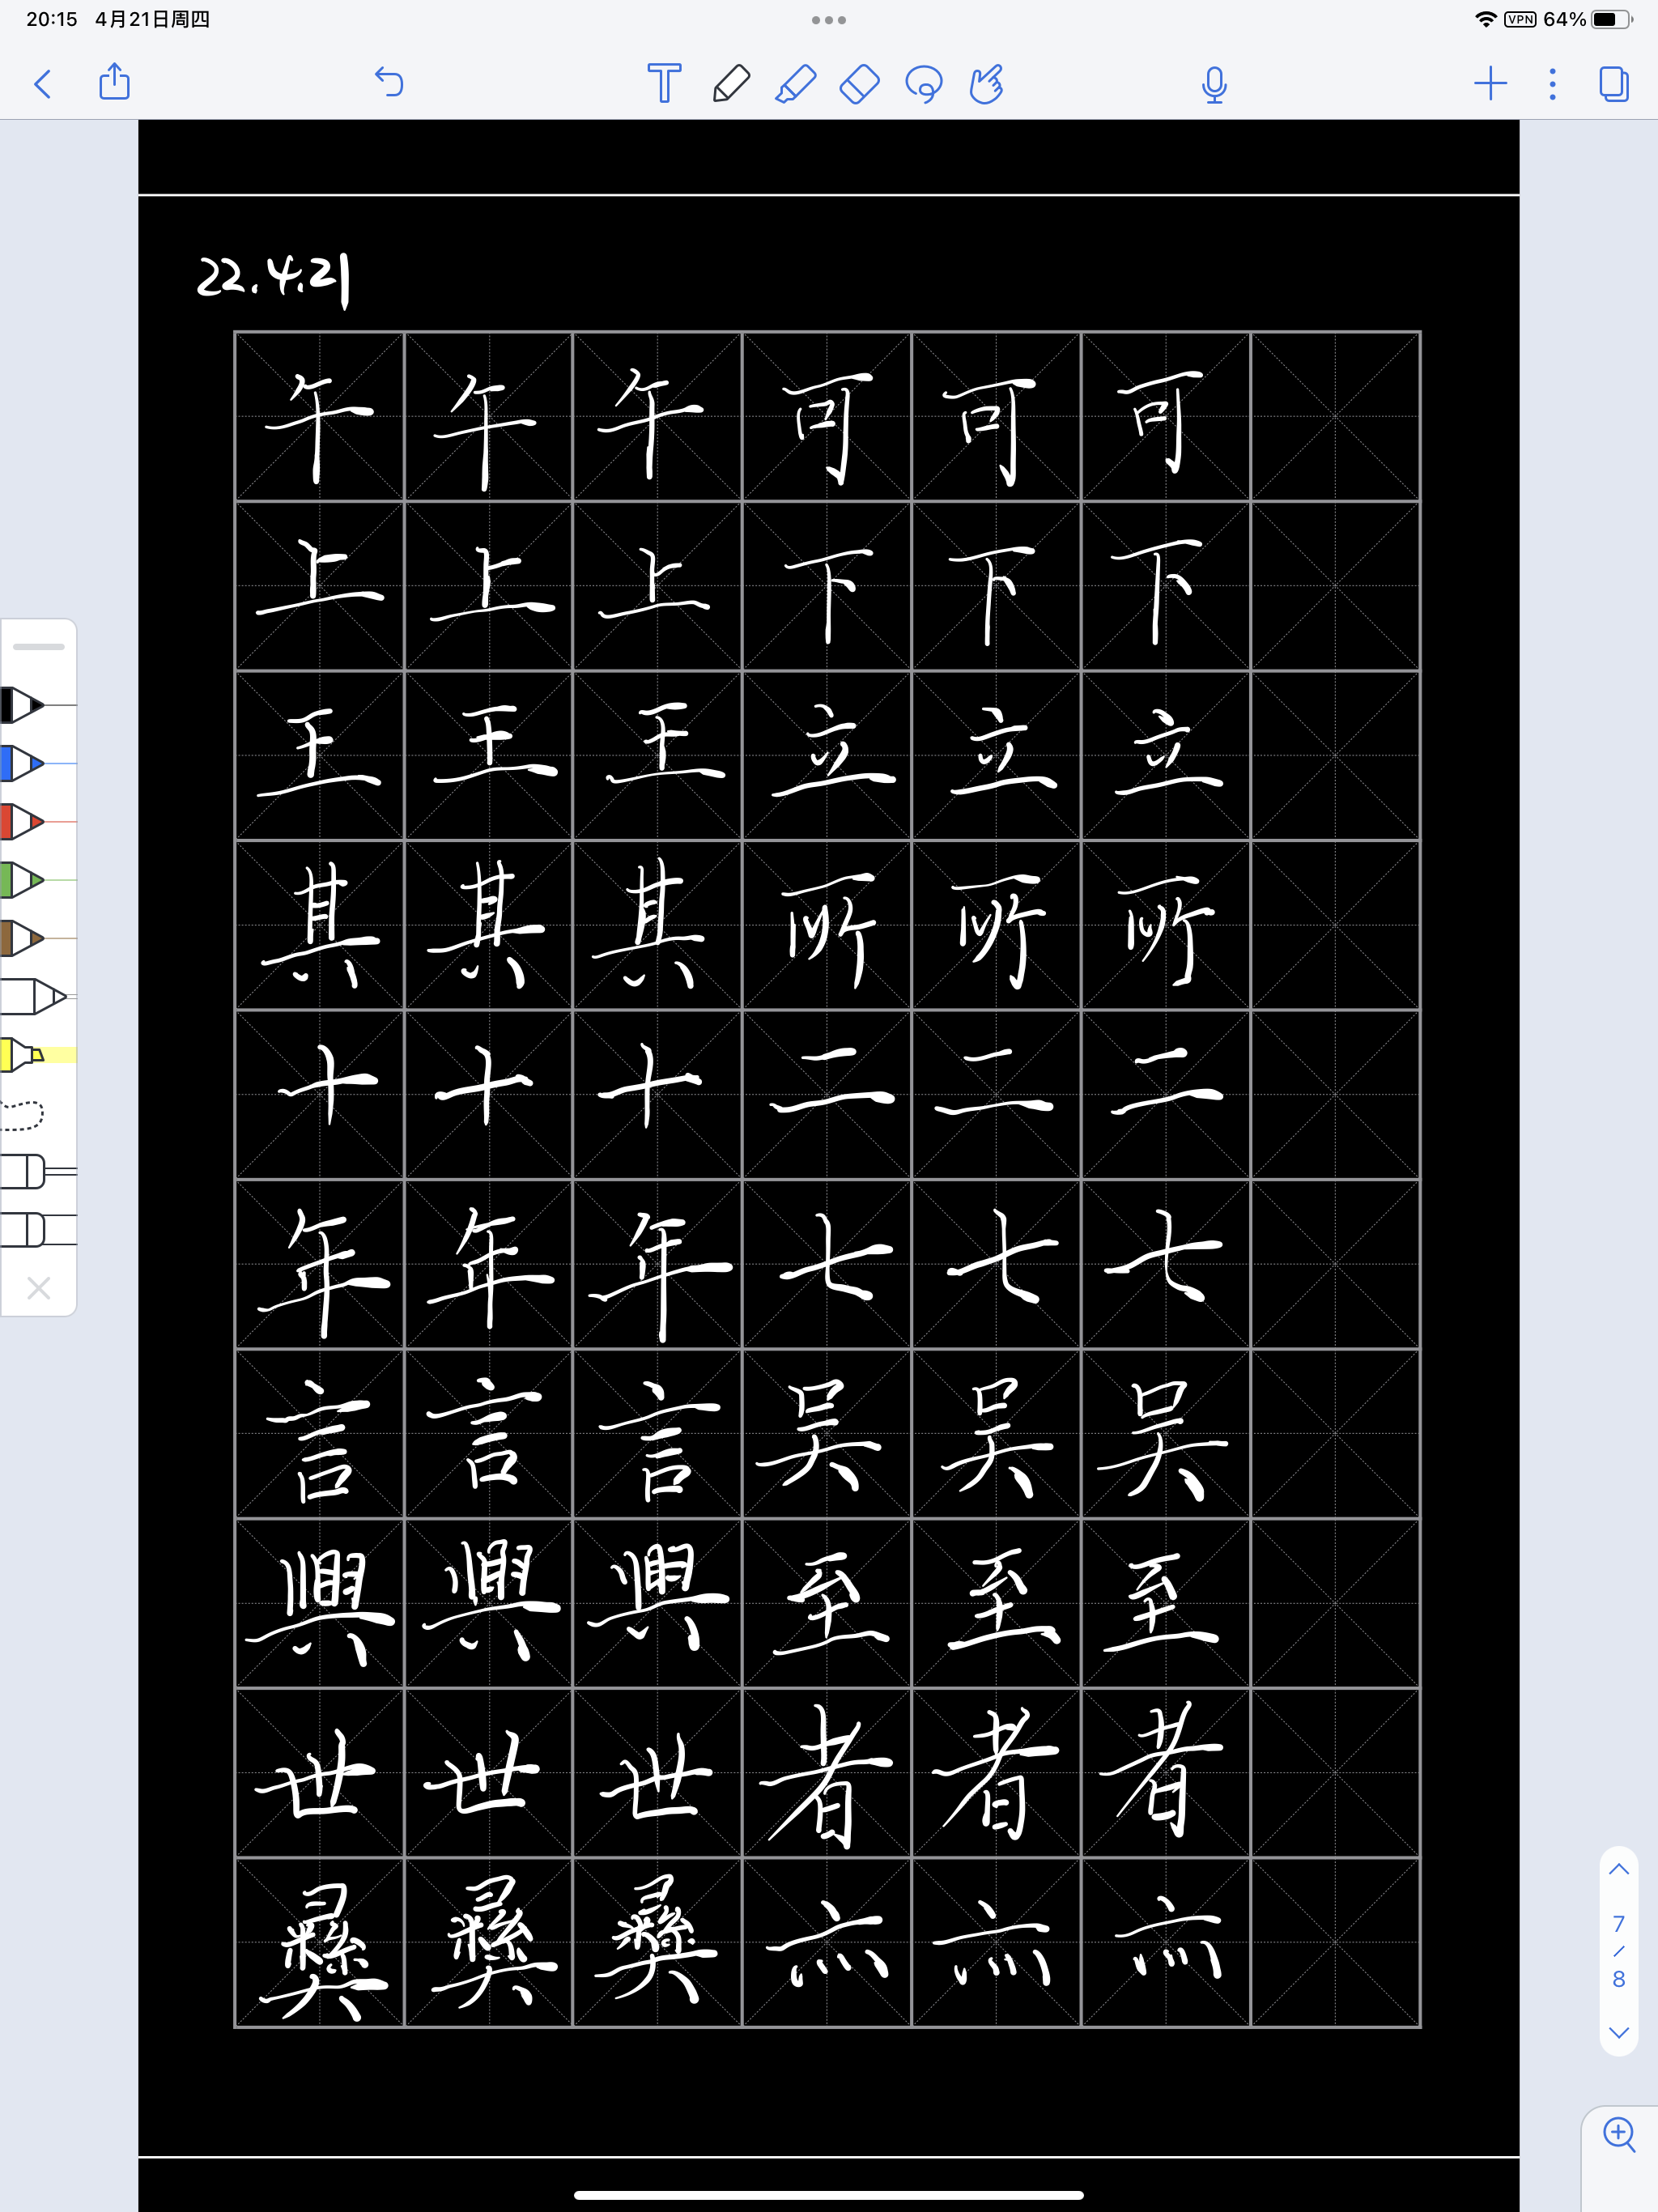 20:15 4月21日周四
VPN 64%
22.4.21
午午午可可可
上上上下下下
王王王立立立
其其其所所所
十十十二二二
年年年七七七
言言言吴吴吴
興興興至至至
世世世者者者
彝彝彝亦亦亦
7
/
8